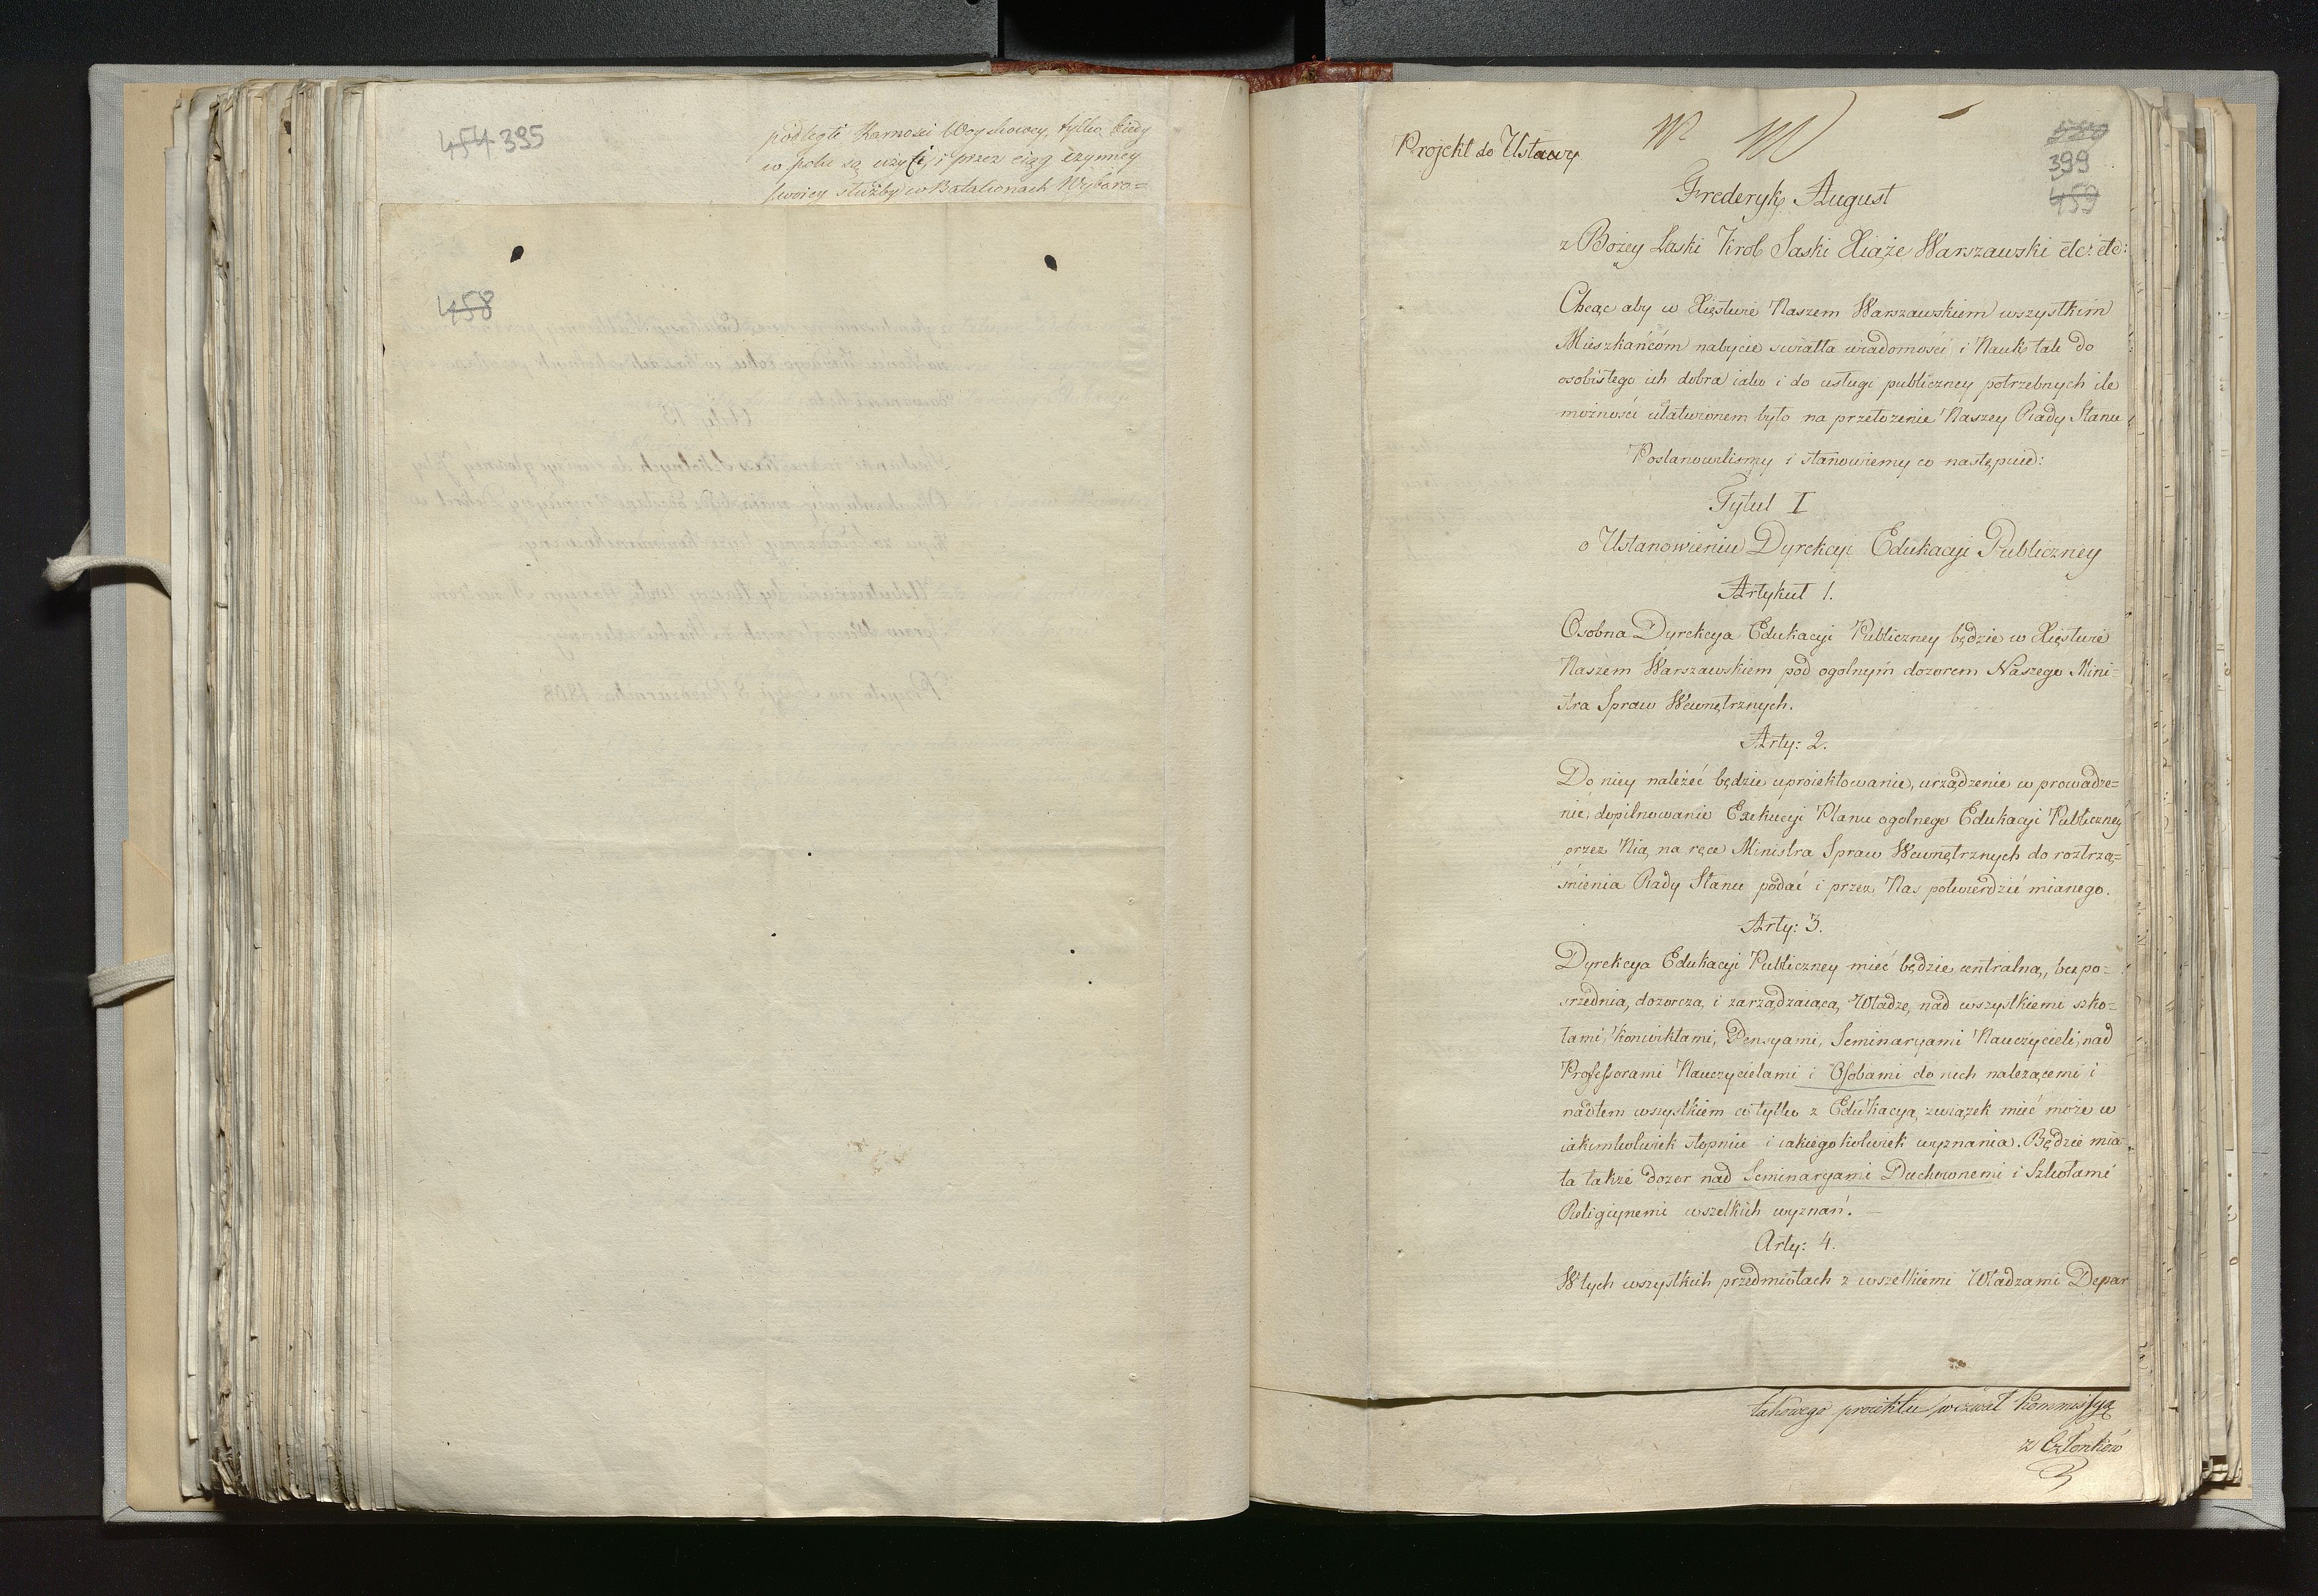 454 395
podległe Karności Woyskowey, tylko kiedy
w polu są użyti, i przez ciąg czynney
swoiey służby w Batalionach Wybora=
458
Projekt do Ustawy
399
459
Frederyk August
z Bożey Łaski Krol Saski Xiąże Warszawski etc: etc:
Chcąc aby w Xięstwie Naszem Warszawskiem wszystkim
Mieszkańcóm nabycie swiatła wiadomości i Nauk tak do
osobistego ich dobra iako i do usługi publiczney potrzebnych ile
możności ułatwionem było na przełożenie Naszey Rady Stanu
Postanowiliśmy i stanowiemy co następuie:
Tytuł I
o Ustanowieniu Dyrekcyi Edukacyi Publiczney
Artykuł 1.
Osobna Dyrekcya Edukacyi Publiczney będzie w Xięstwie
Naszem Warszawskiem pod ogolnym dozorem Naszego Mini=
stra Spraw Wewnętrznych.
Arty: 2.
Do niey należeć będzie uproiektowanie, urządzenie w prowadze=
nie, dopilnowanie Exekucyi Planu ogolnego Edukacyi Publiczney
przez Nią na ręce Ministra Spraw Wewnętrznych do roztrzą=
śnienia Rady Stanu podać i przez Nas potwierdzić mianego.
Arty: 3.
Dyrekcya Edukacyi Publiczney mieć będzie centralną, bezpo=
srzednią, dozorczą, i zarządzaiącą, Władzę, nad wszystkiemi szko=
łami, konwiktami, Pensyami, Seminaryami Nauczycieli, nad
Professorami Nauczycielami i Osobami do nich należącemi i
nadtem wszystkiem co tylko z Edukacyą związek mieć może w
iakimkolwiek stopniu i iakiegokolwiek wyznania. Będzie mia
ła także dozor nad Seminaryami Duchownemi i Szkołami
Religiynemi wszelkich wyznań. —
Arty: 4.
W tych wszystkich przedmiotach z wszelkiemi Władzami Depar
takowego proiektu wezwał Kommissyą
z Członków